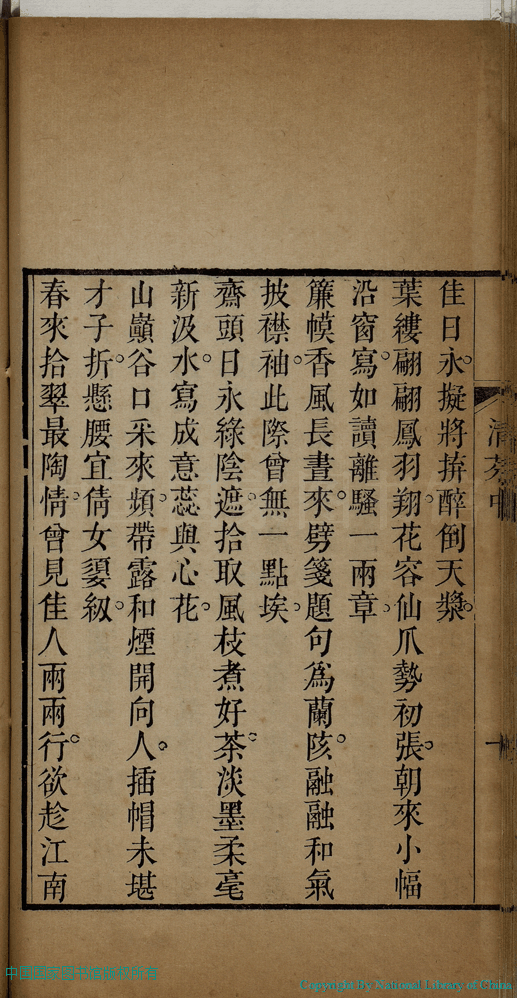 佳日永擬將拚醉倒天漿
葉縷翩翩鳳羽翔花容仙爪勢初張朝來小幅
沿窗寫如讀離騷一兩章
簾幙香風長晝來劈箋題句爲蘭陔融融和氣
披襟袖此際曾無一點埃
齋頭日永綠陰遮拾取風枝煮好茶淡墨柔毫
新汲水寫成意蕊與心花
山巓谷口采來頻帶露和煙開向人插帽未堪
才子折懸腰宜倩女嬃紉
春來拾翠最陶情曾見佳人兩兩行欲趁江南
Copyright By National Library of China